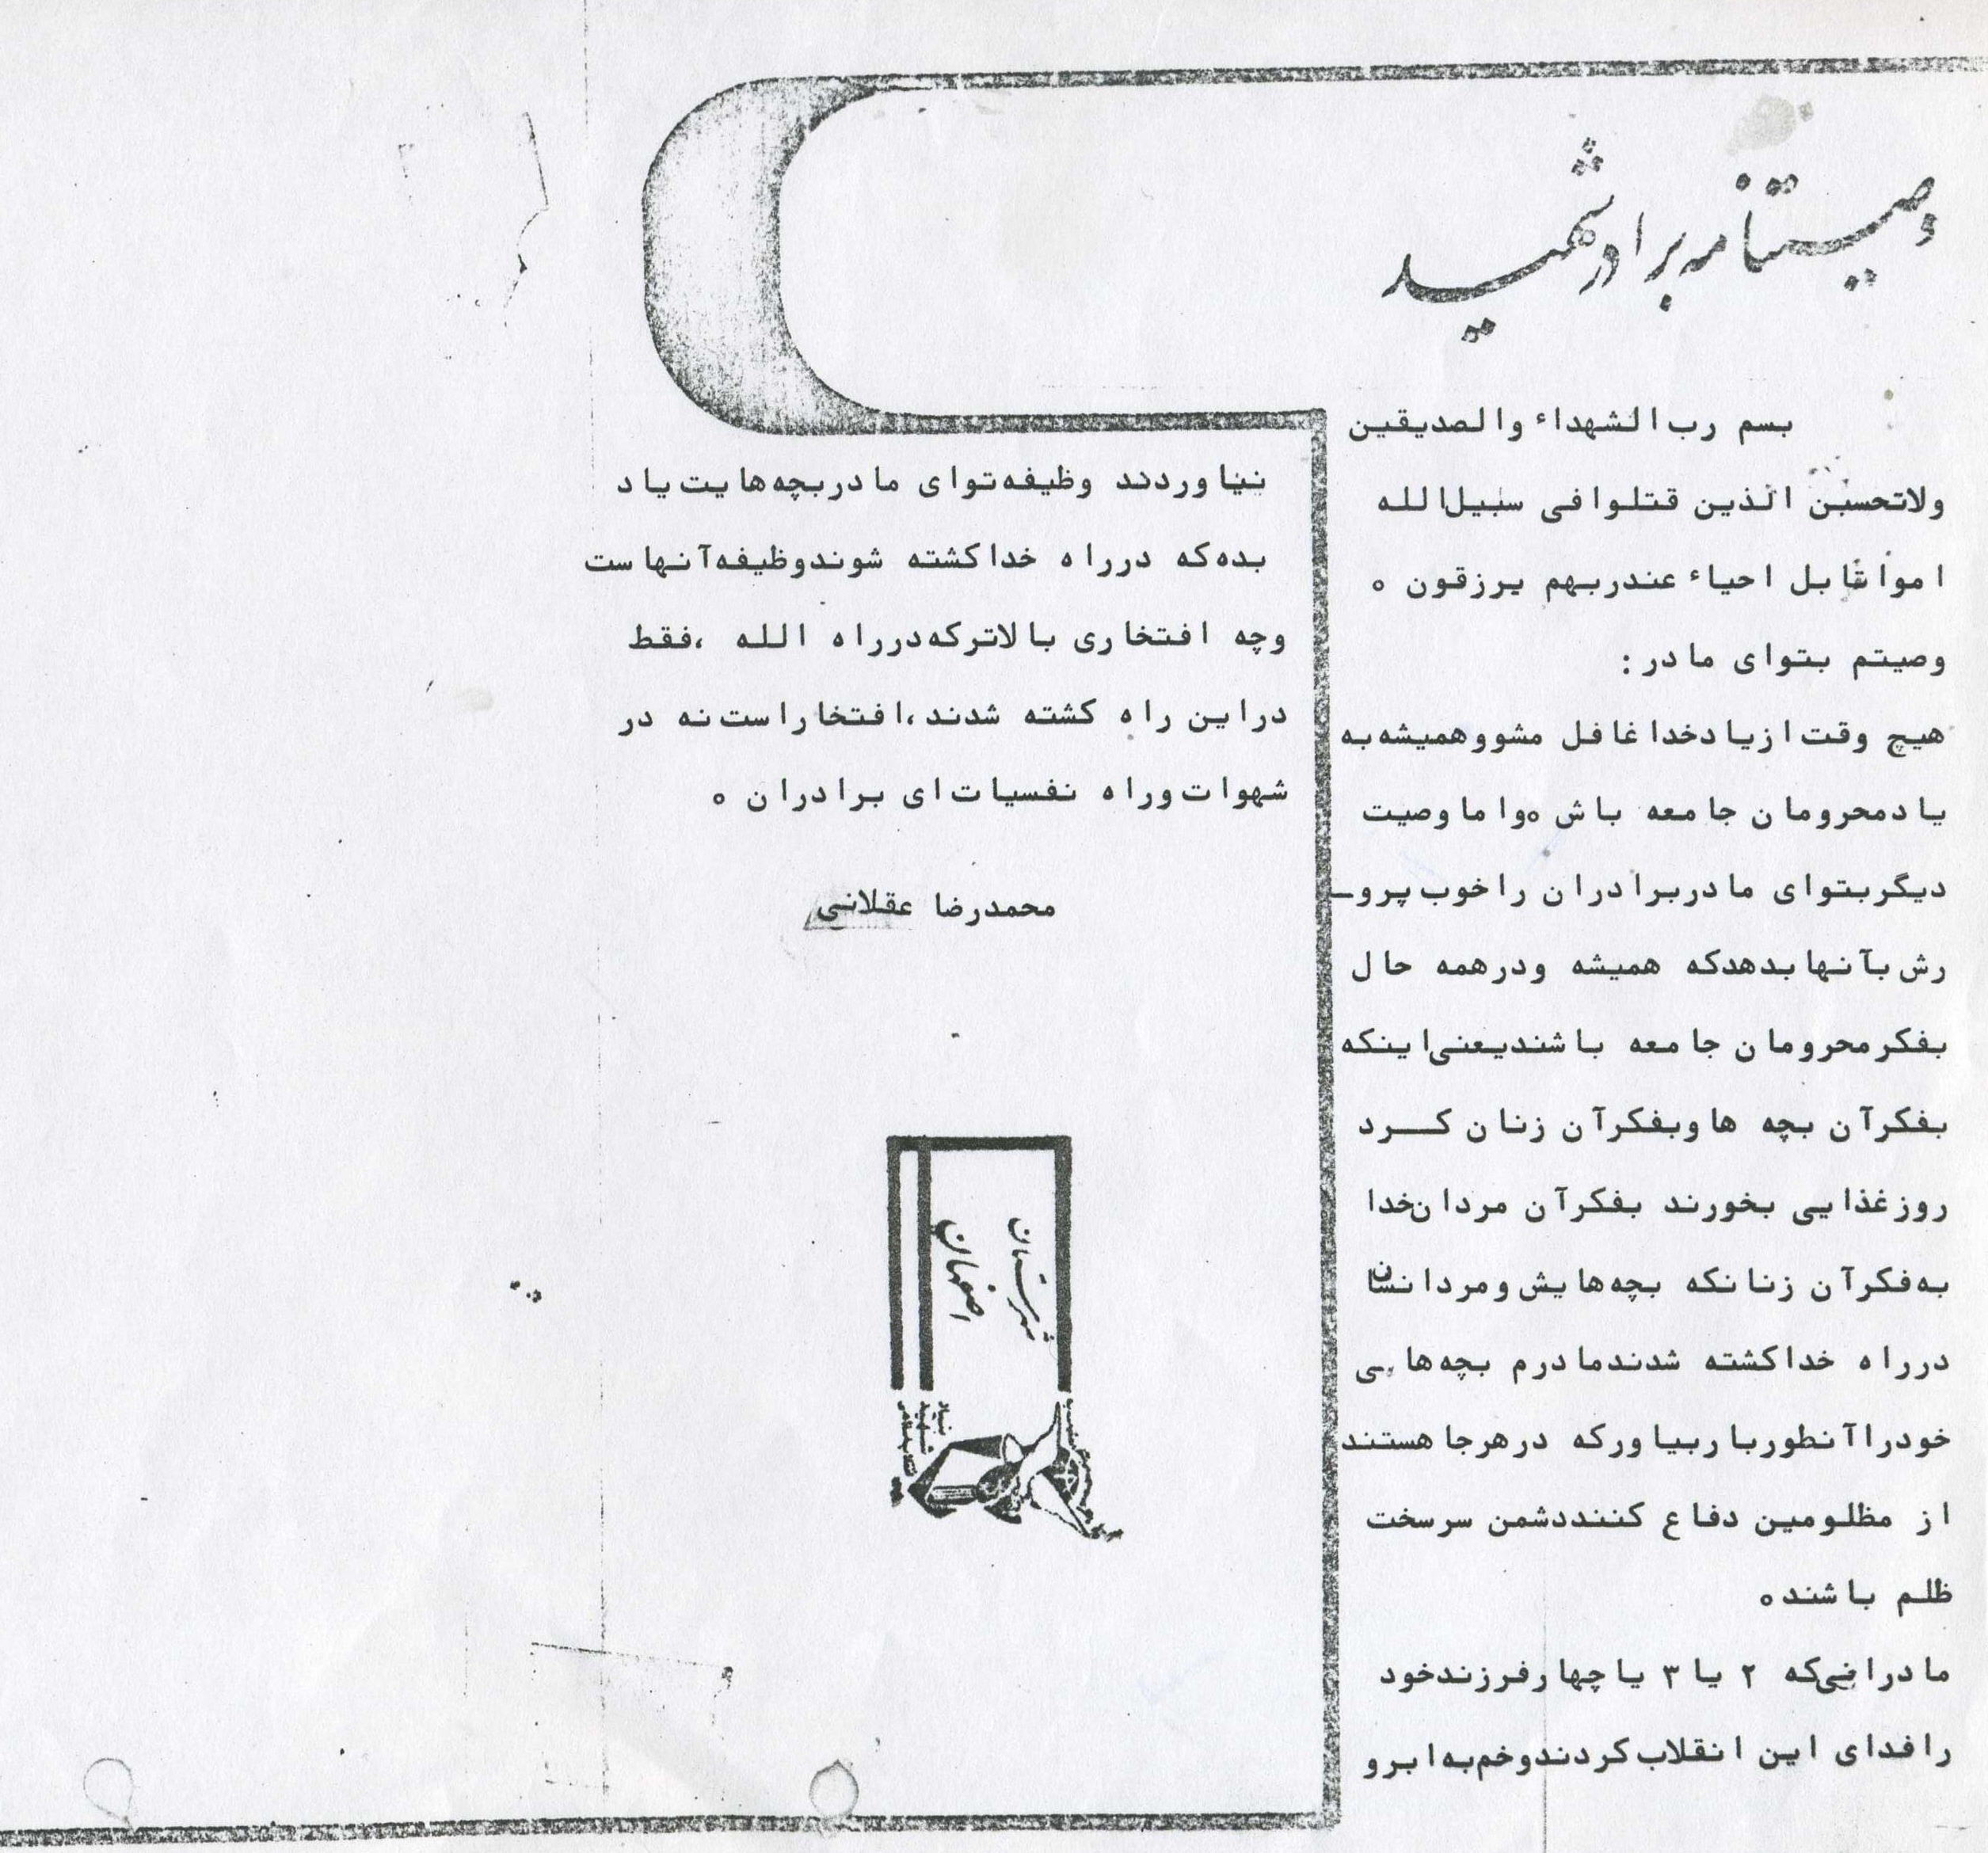 وصیتنامه برادر شهید
بسم رب الشهداء والصدیقین
ولاتحسبن الذین قتلوا فی سبیل الله
امواتا بل احیاء عندربهم یرزقون ه
وصیتم بتوای مادر:
هیچ وقت ازیادخدا غافل مشو وهمیشه به
یادمحرومان جامعه باش ه واما وصیت
دیگربتوای مادربرادران راخوب پرو-
رش بآنها بدهدکه همیشه ودرهمه حال
بفکرمحرومان جامعه باشندیعنی اینکه
بفکرآن بچه ها وبفکرآن زنان کرد
روزغذایی بخورند بفکرآن مردان خدا
به فکرآن زنانکه بچه هایش ومردانشان
درراه خداکشته شدندمادرم بچه هایی
خودراآنطورباربیاورکه درهرجا هستند
از مظلومین دفاع کننددشمن سرسخت
ظلم باشنده
مادرانی که ۲ یا ۳ یاچهارفرزندخود
رافدای این انقلاب کردندوخم به ابرو
نیاوردند وظیفه توای مادربچه هایت یاد
بده که درراه خداکشته شوندوظیفه آنهاست
وچه افتخاری بالاترکه درراه الله ،فقط
دراین راه کشته شدند،افتخاراست نه در
شهوات وراه نفسیات ای برادران ه
محمدرضا عقلانی
شهرستان
اصفهان
بنیاد
شهید
انقلاب اسلامی